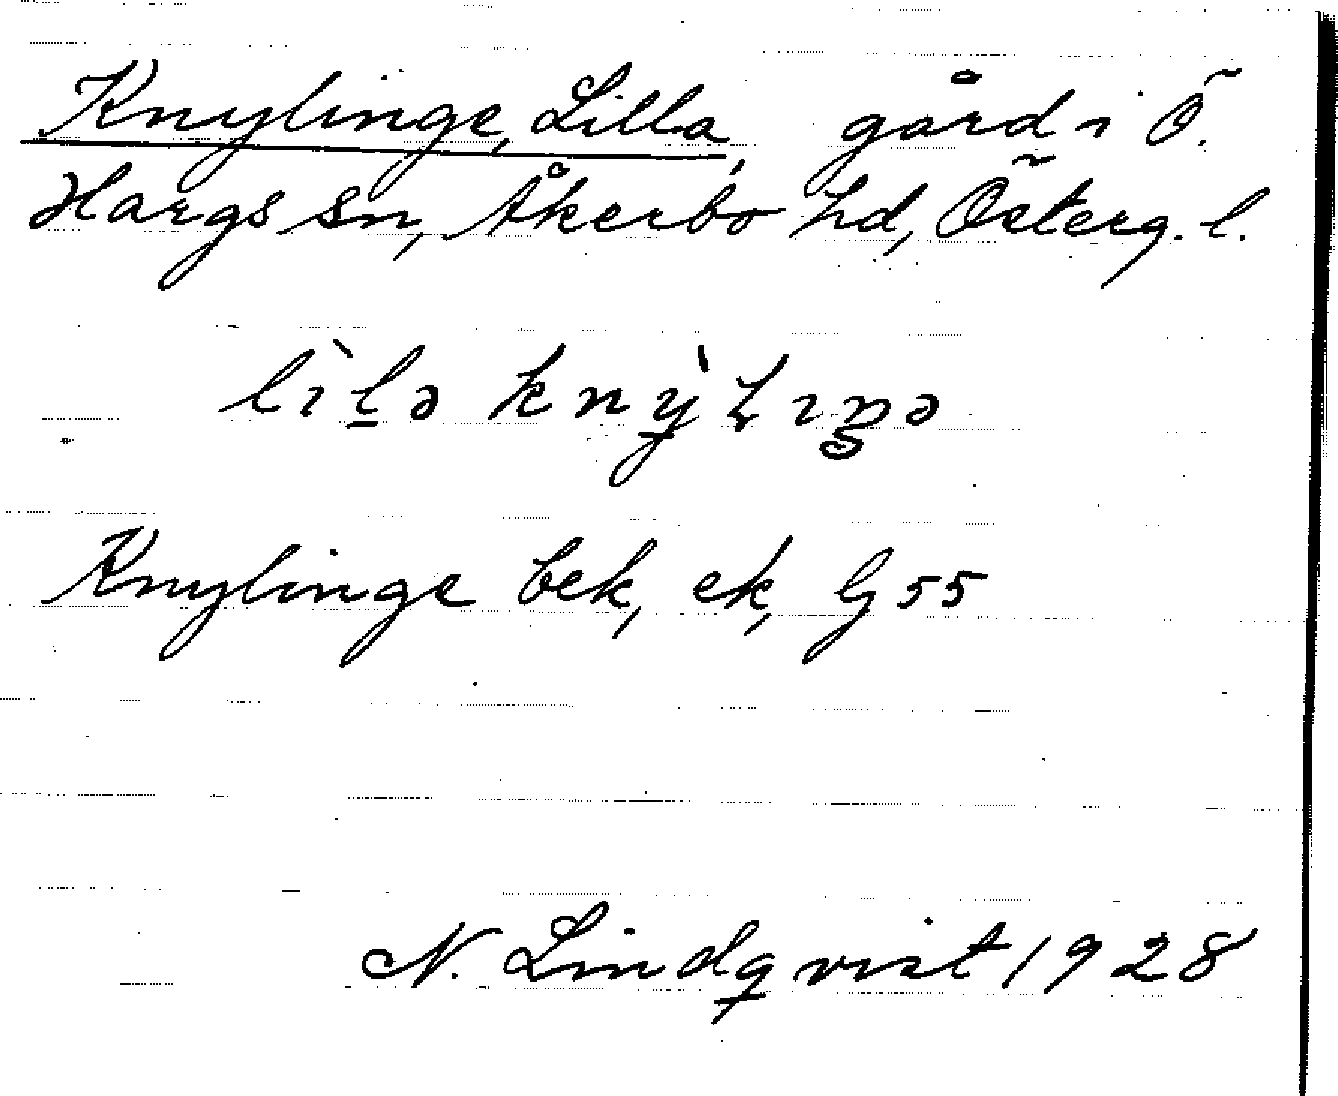 Knylinge, Lilla, gård i Ö.
Hargs sn, Åkerbo hd, Österg. l.
Knylinge bek, ek, G 55
N. Lindqvist 1928